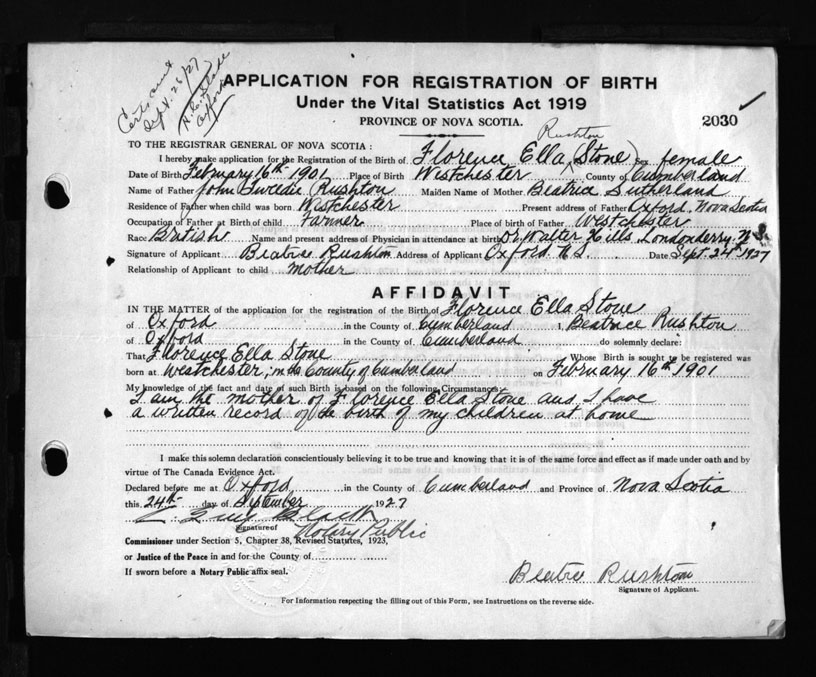 Cert. sent
Sept. 26/27
Oxford
APPLICATION FOR REGISTRATION OF BIRTH
Under the Vital Statistics Act 1919
PROVINCE OF NOVA SCOTIA.
2030
TO THE REGISTRAR GENERAL OF NOVA SCOTIA:
Rushton
I hereby make application for the Registration of the Birth of Florence Ella (Stone) Sex female
Date of Birth February 16th 1901 Place of Birth Westchester County of Cumberland
Name of Father John Tweedie (Rushton Maiden Name of Mother Beatrice Sutherland
Residence of Father when child was born Westchester Present address of Father Oxford, Nova Scotia
Occupation of Father at Birth of child Farmer Place of birth of Father Westchester
Race British Name and present address of Physician in attendance at birth Dr. Walter Hills, Londonderry, N.S.
Signature of Applicant Beatrice Rushton Address of Applicant Oxford. N.S. Date Sept. 24th 1927
Relationship of Applicant to child mother
AFFIDAVIT
IN THE MATTER of the application for the registration of the Birth of Florence Ella Stone
of Oxford in the County of Cumberland I, Beatrice Rushton
of Oxford in the County of Cumberland do solemnly declare:
That Florence Ella Stone Whose Birth is sought to be registered was
born at Westchester, in the County of Cumberland on February 16th 1901
My knowledge of the fact and date of such Birth is based on the following Circumstances:—
I am the mother of Florence Ella Stone and I have
a written record of the birth of my children at home
I make this solemn declaration conscientiously believing it to be true and knowing that it is of the same force and effect as if made under oath and by
virtue of The Canada Evidence Act.
Declared before me at Oxford in the County of Cumberland and Province of Nova Scotia
this 24th day of September 1927
Black
Signature of Notary Public
Commissioner under Section 5, Chapter 38, Revised Statutes, 1923,
or Justice of the Peace in and for the County of
If sworn before a Notary Public affix seal.
Beatrice Rushton
Signature of Applicant.
For Information respecting the filling out of this Form, see Instructions on the reverse side.